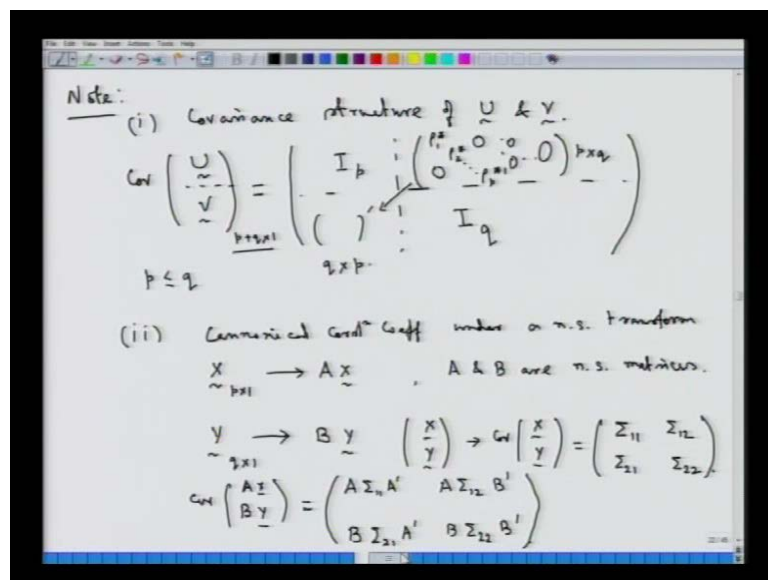 File Edit View Insert Actions Tools Help
Note:
(i) Covariance structure of U & V.
Cov ( U V ) p+q×1 = ( I_p ( ρ1* 0 ·0 ρ2* 0·· 0 ρp* ) p×q
( )' q×p I_q )
p ≤ q
(ii) Cannonical Corrⁿ Coeff under a n.s. transform
X p×1 → A X , A & B are n.s. matrices.
Y q×1 → B Y ( X Y ) → Cov ( X Y ) = ( Σ11 Σ12 Σ21 Σ22 ).
Cov ( A X B Y ) = ( A Σ11 A' A Σ12 B' B Σ21 A' B Σ22 B' )